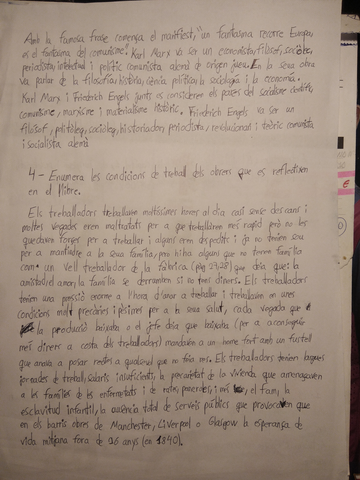 Amb la famosa frase comença el manifest, "un fantasma recorre Europa,
és el fantasma del comunisme". Karl Marx va ser un economista, filosof, sociòleg,
periodista, intel·lectual i polític comunista alemà de origen jueu. En la seua obra
va parlar de la filosofia, història, ciència política, la sociologia i la economía.
Karl Marx i Friedrich Engels junts es consideren els pares del socialisme científic,
comunisme, marxisme i materialisme històric. Friedrich Engels va ser un
filòsof, politòleg, sociòleg, historiador, periodista, revolucionari i teòric comunista
i socialista alemà
4- Enumera les condicions de treball dels obrers que es reflectixen
en el llibre.
Els treballadors treballaven moltíssimes hores al día casi sense descans i
moltes vegades eren maltratats per a que treballaren més rapid però no les
quedaven forçes per a treballar i alguns eren despedits i ja no tenien sou
per a mantindre a la seua família, pero hi ha alguns que no tenien família
com un vell treballador de la fàbrica (pàg 27,28) que deia que: la
amistat, el amor, la família se derramen si no tens diners. Els treballadors
tenien una pressió enorme a l'hora d'anar a treballar i treballaven en unes
condicions molt precàries i pèsimes per a la seua salut, cada vegada que
la producció baixaba o el jefe deia que baixaba (per a aconseguir
més diners a costa dels treballadors) mandaven a un home fort amb un fustell
que anava a pasar revista a qualsevol que no fera més. Els treballadors tenien llargues
jornades de treball, salaris insuficients, la precarietat de la vivienda que amenaçaven
a les famílies de les enfermetats i de ruïna, el fam, la
esclavitud infantil, la ausència total de serveis públics que provocaven que
en els barris obres de Manchester, Liverpool o Glasgow la esperança de
vida mitjana fora de 26 anys (en 1840).